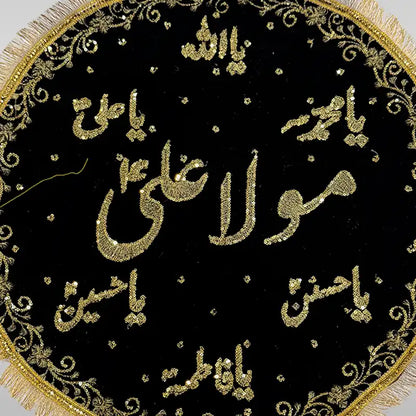 یا اللہ
یا محمدؐ یا علیؑ
مولا علیؑ
یا حسنؑ یا حسینؑ
یا فاطمہؑ